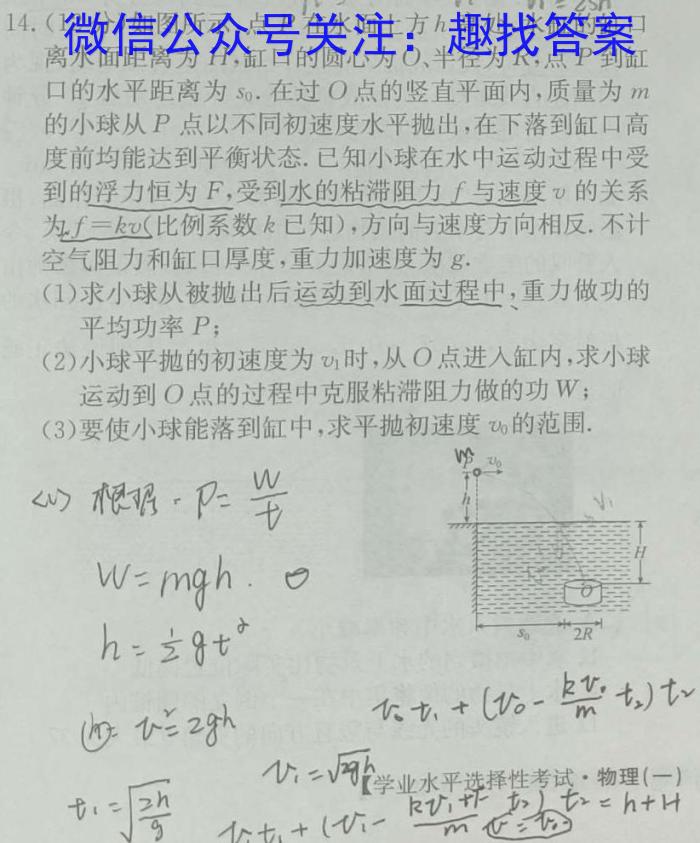 14.(1 分)如图所示,点P在水面上方h 缸口
微信公众号关注：趣找答案
离水面距离为H,缸口的圆心为O、半径为R,点P到缸
口的水平距离为s₀.在过O点的竖直平面内,质量为m
的小球从P点以不同初速度水平抛出,在下落到缸口高
度前均能达到平衡状态.已知小球在水中运动过程中受
到的浮力恒为F,受到水的粘滞阻力f与速度v的关系
为f=kv(比例系数k已知),方向与速度方向相反.不计
空气阻力和缸口厚度,重力加速度为g.
(1)求小球从被抛出后运动到水面过程中,重力做功的
平均功率P;
(2)小球平抛的初速度为v₁时,从O点进入缸内,求小球
运动到O点的过程中克服粘滞阻力做的功W;
(3)要使小球能落到缸中,求平抛初速度v₀的范围.
m v₀
h
H
O
s₀ 2R
(1) 根据. P=W/t
W=mgh.
h=½gt²
v²=2gh
v₀t₁+(v₀-kv₀/m t₂)t₂
v₁=√2gh
【学业水平选择性考试·物理(一)
t₁=√2h/g
t₂=h+H